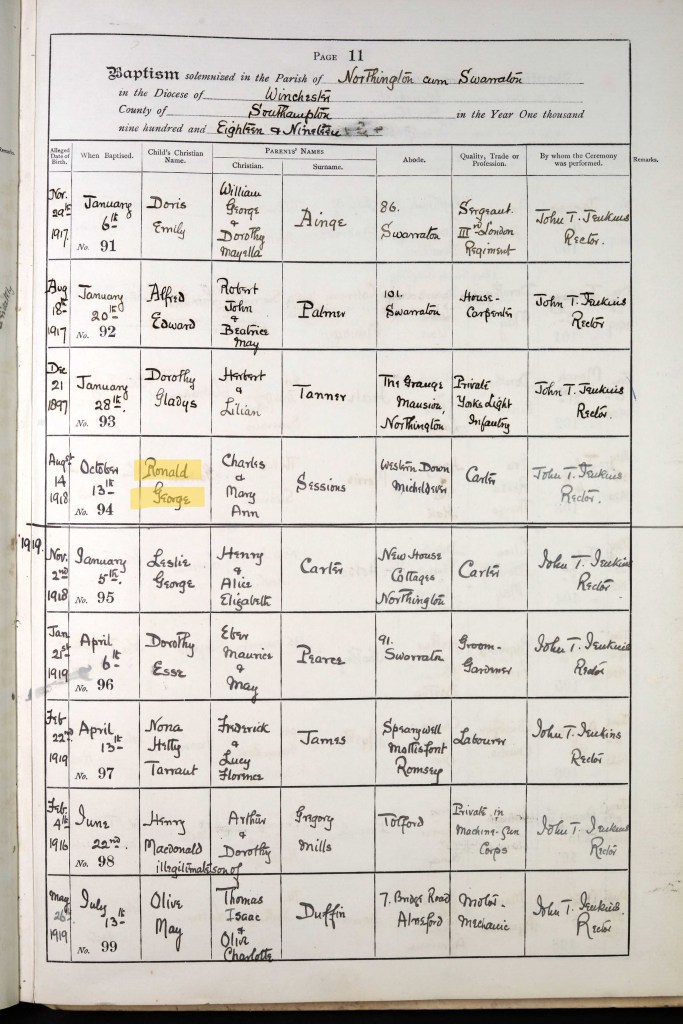 PAGE 11
Baptism solemnized in the Parish of Northington cum Swarraton
in the Diocese of Winchester
County of Southampton in the Year One thousand
nine hundred and Eighteen & Nineteen
Alleged Date of Birth. When Baptised. Child's Christian Name. PARENTS' NAMES Christian. Surname. Abode. Quality, Trade or Profession. By whom the Ceremony was performed. Remarks.
Nov. 29th 1917. January 6th No. 91 Doris Emily William George & Dorothy Mayella Ainge 86. Swarraton Sergeant. IIIrd London Regiment John T. Jenkins Rector.
Aug 18th 1917 January 20th No. 92 Alfred Edward Robert John & Beatrice May Palmer 101. Swarraton House-Carpenter John T. Jenkins Rector
Dec 21 1897 January 28th. No. 93 Dorothy Gladys Herbert & Lilian Tanner The Grange Mansion, Northington Private Yorks Light Infantry John T. Jenkins Rector.
Augst 14 1918 October 13th No. 94 Ronald George Charles & Mary Ann Sessions Western Down Micheldever Carter John T. Jenkins Rector.
1919.
Nov. 2nd 1918 January 5th. No. 95 Leslie George Henry & Alice Elizabeth Carter New House Cottages Northington Carter John T. Jenkins Rector
Jan 21st 1919 April 6th No. 96 Dorothy Esse Eber Maurice & May Pearce 91. Swarraton Groom-Gardener John T. Jenkins Rector
Feb 22nd. 1919 April 13th No. 97 Nona Hetty Tarrant Frederick & Lucy Florence James Spearywell Mottisfont Romsey Labourer John T. Jenkins Rector
Feb. 4th 1916 June 22nd. No. 98 Henry Macdonald illegitimate son of Arthur & Dorothy Gregory Mills Totford Private in Machine-Gun Corps John T. Jenkins Rector
May 26th 1919 July 13th No. 99 Olive May Thomas Isaac & Olive Charlotte Duffin 7. Bridge Road Alresford Motor-Mechanic John T. Jenkins. Rector